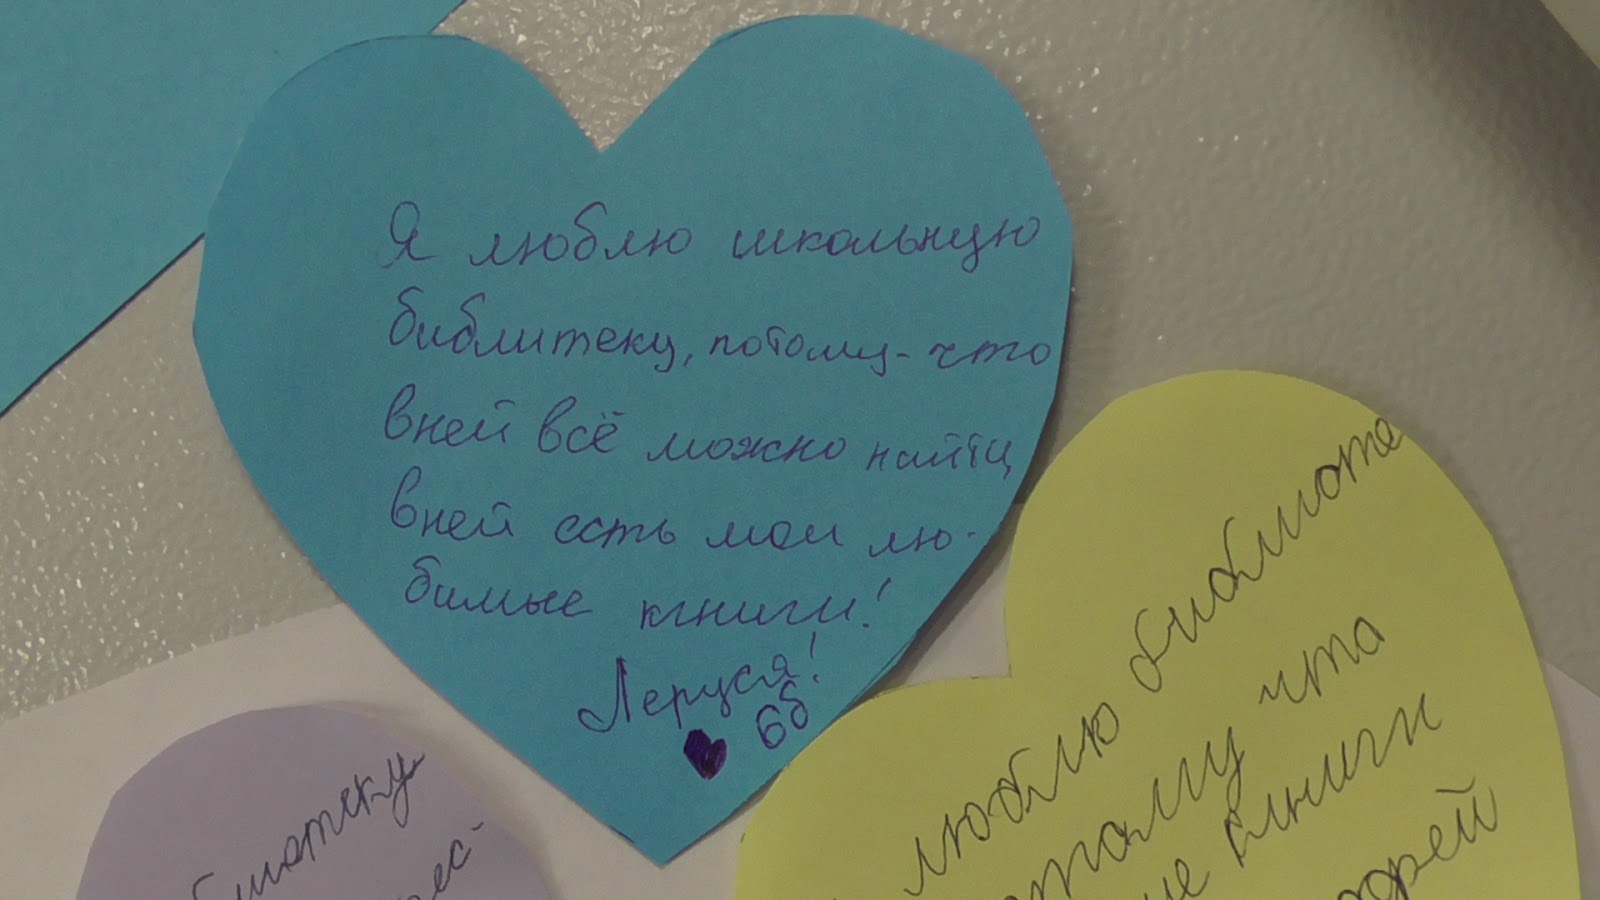 Я люблю школьную
библитеку, потому-что
вней всё можно найти
вней есть мои лю-
бимые книги!
Леруся!
6б
люблю библиоте
что
книги